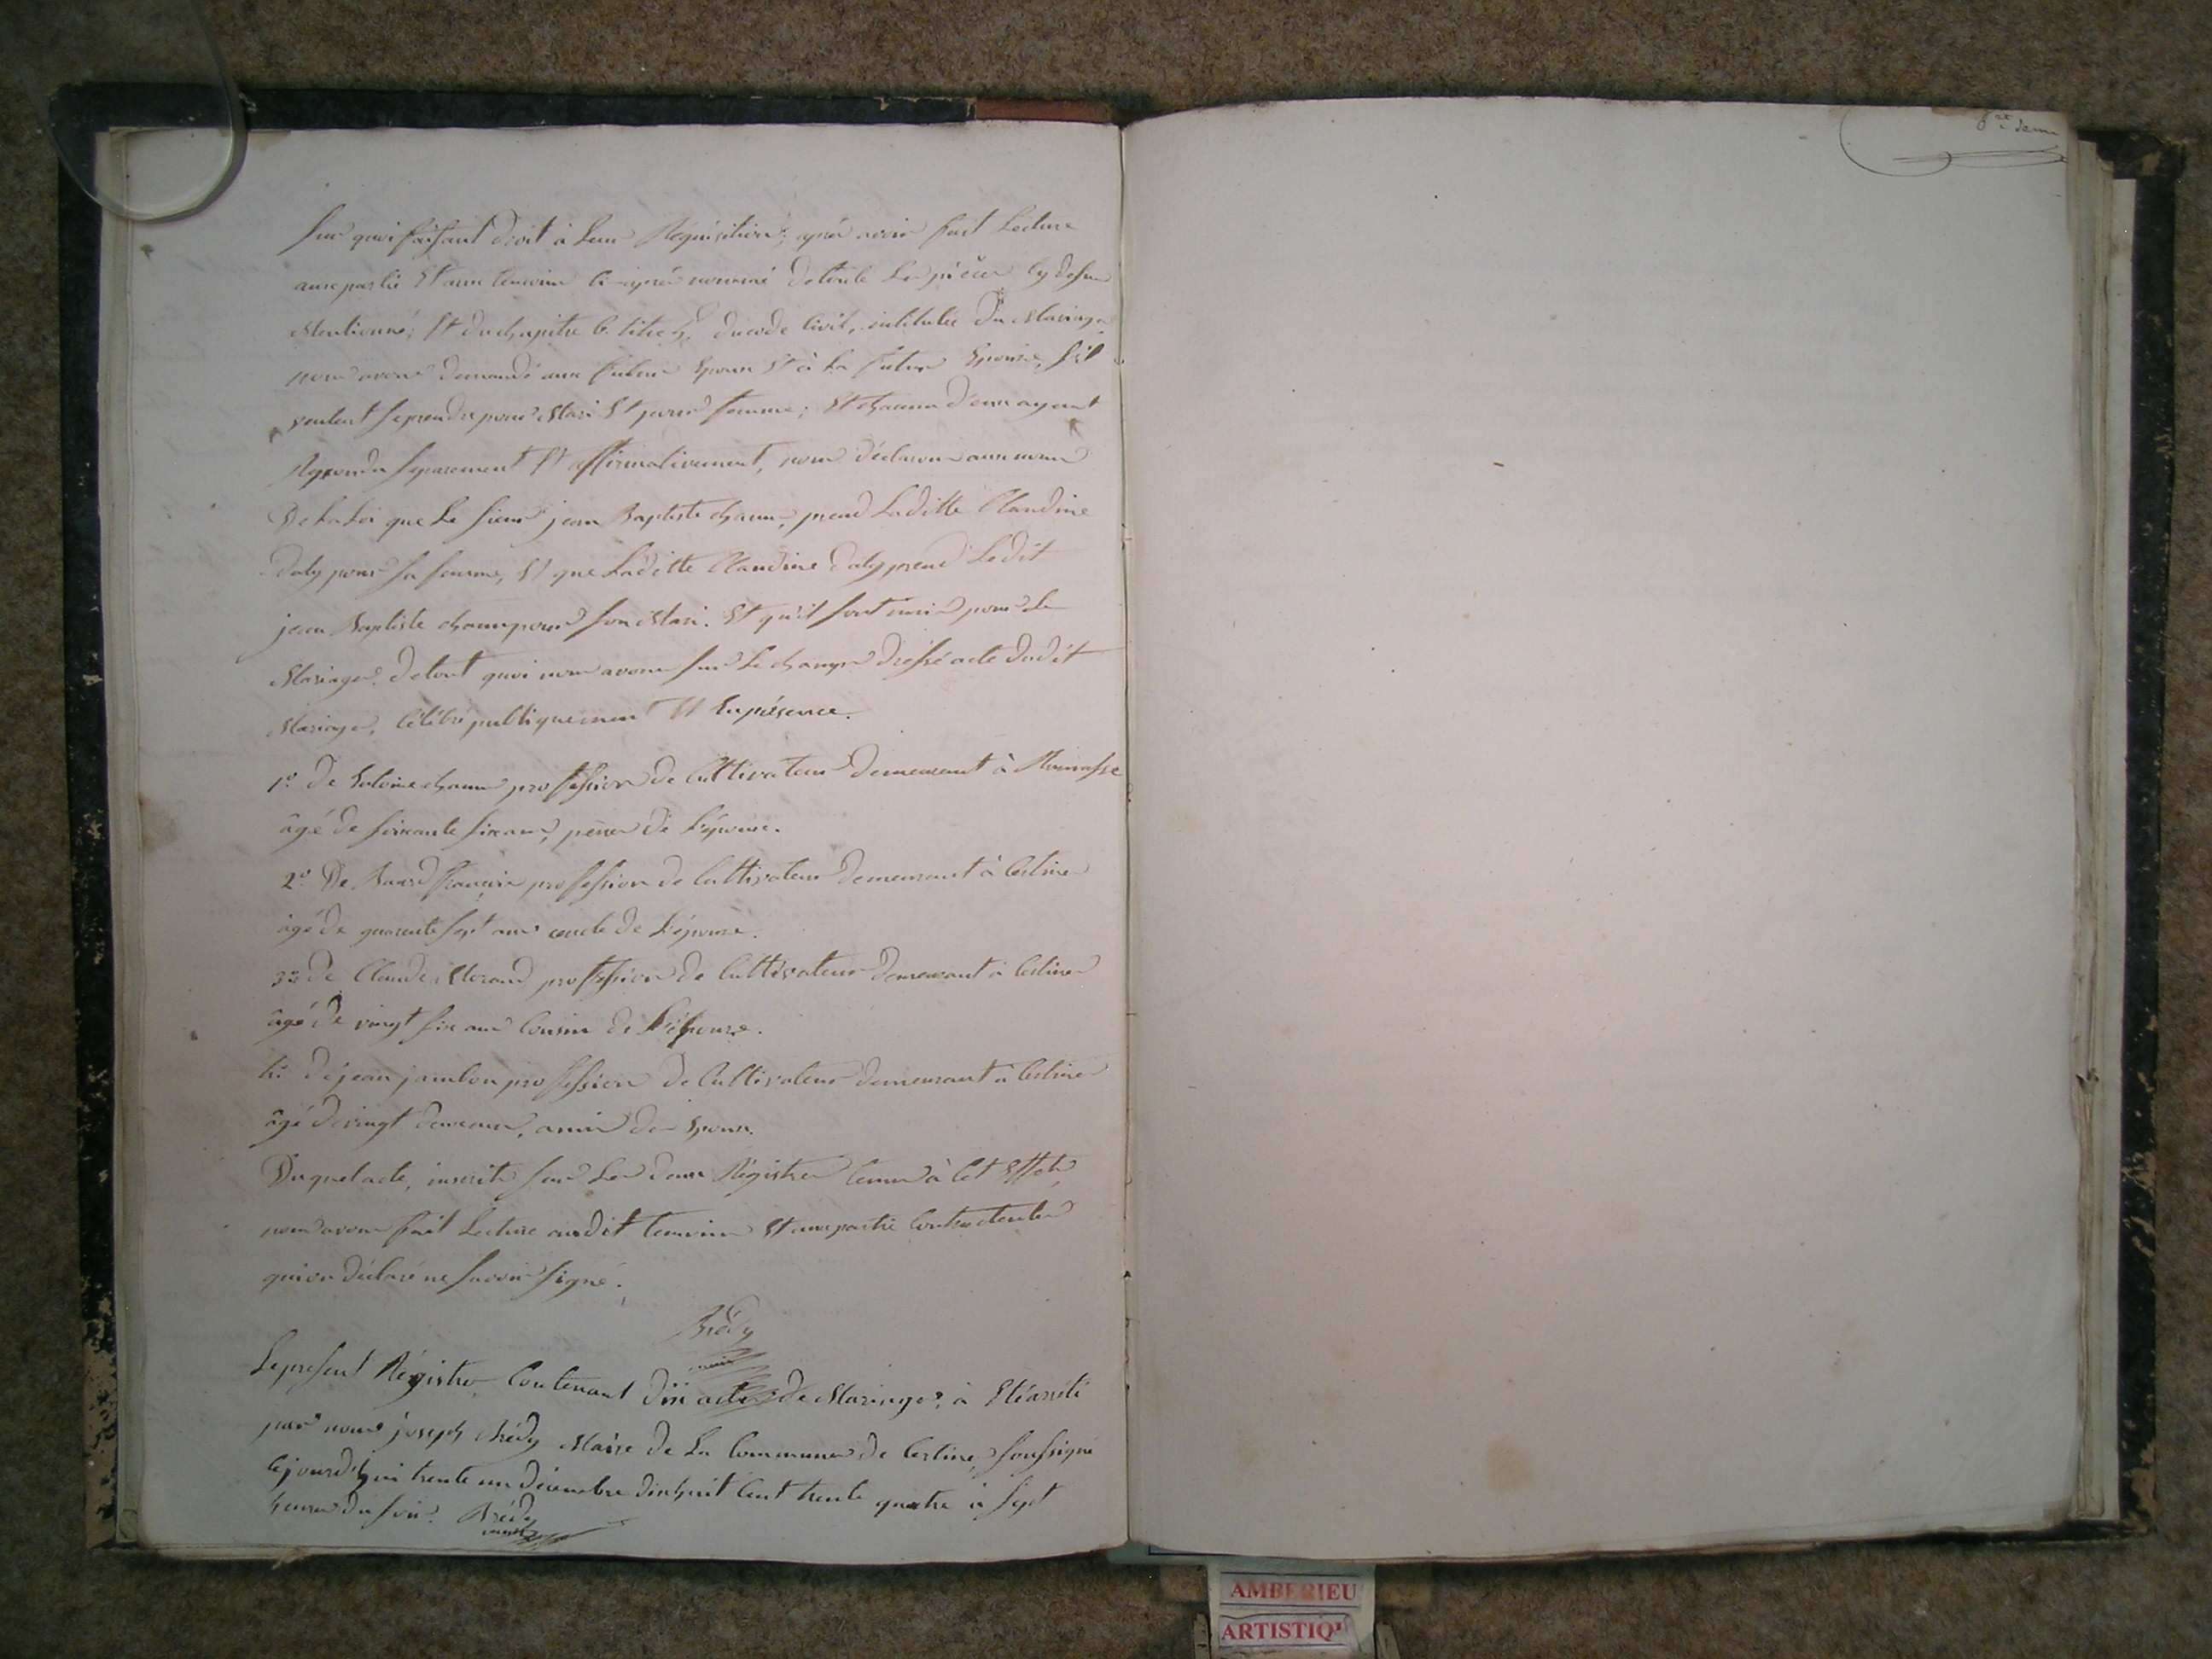 Sur quoi faisant droit à leur Réquisition; après avoir fait Lecture
aux partie Et aux temoins ci-après nommé de toute Les pièces cy dessus
Mentionné; Et du chapitre 6. titre 5, du code Civil, intitulée Du Mariage
nous avons demandé aux futur Epoux Et à La future Epouse, S'il
veulent se prendre pour Mari Et pour femme; Et chacun d'eux ayant
Repondu separement Et affirmativement, nous déclarons au nom
De La Loi que Le Sieur jean Baptiste chanu, prend Laditte Claudine
Daly pour sa femme, Et que Laditte Claudine Daly prend Ledit
jean Baptiste chanu pour son Mari. Et qu'il sont unis pour Le
Mariage. De tout quoi nous avons sur Le champ dressé acte dudit
Mariage, Célébré publiquement Et En présence.
1º De chanu profession de Cultivateur Demeurant à
âgé de soixante six ans, père de L'épouse.
2º De françois profession de Cultivateur Demeurant à Certines
âgé de quarante sept ans oncle de L'épouse.
3º de Claude Morand profession de Cultivateur Demeurant à Certines
âgé de vingt six ans Cousin de L'épouse.
4º De jean jambon profession De Cultivateur demeurant à Certines
âgé de vingt deux ans, amis de Epoux.
Duquel acte, inscrite sur Les deux Régistres tenus à Cet Effet,
nous avons fait Lecture audit temoins Et aux partie Contractentes
qui on déclaré ne savoir signé.
Brédy
Le present Régistre Contenant Dix actes de Mariages, à Eté arrêté
par nous joseph Brédy Maire De La Commune De Certines, soussigné
Cejourd'hui trente un Décembre dix huit Cent trente quatre à Sept
heures du soir. Brédy
AMBERIEU
ARTISTIQ